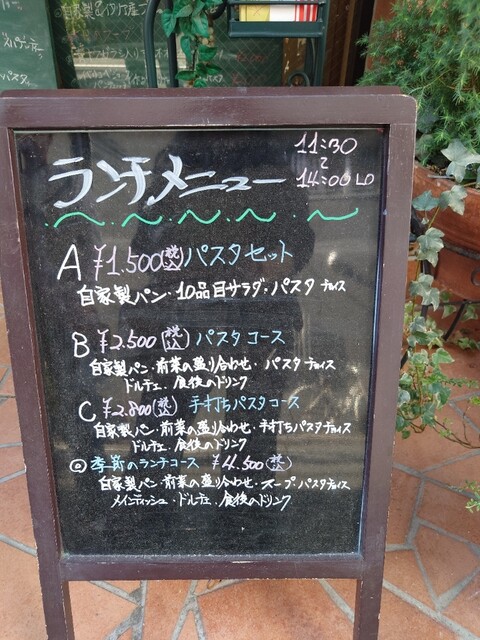 ランチメニュー
11:30
〜
14:00 LO
A ¥1.500(税込)パスタセット
自家製パン・10品目サラダ・パスタ チョイス
B ¥2.500(税込) パスタコース
自家製パン・前菜の盛り合わせ・パスタ チョイス
ドルチェ・食後のドリンク
C ¥2.800(税込) 手打ちパスタコース
自家製パン・前菜の盛り合わせ・手打ちパスタチョイス
ドルチェ・食後のドリンク
◎季節のランチコース ¥4.500(税込)
自家製パン・前菜の盛り合わせ・スープ パスタチョイス
メインディッシュ・ドルチェ・食後のドリンク